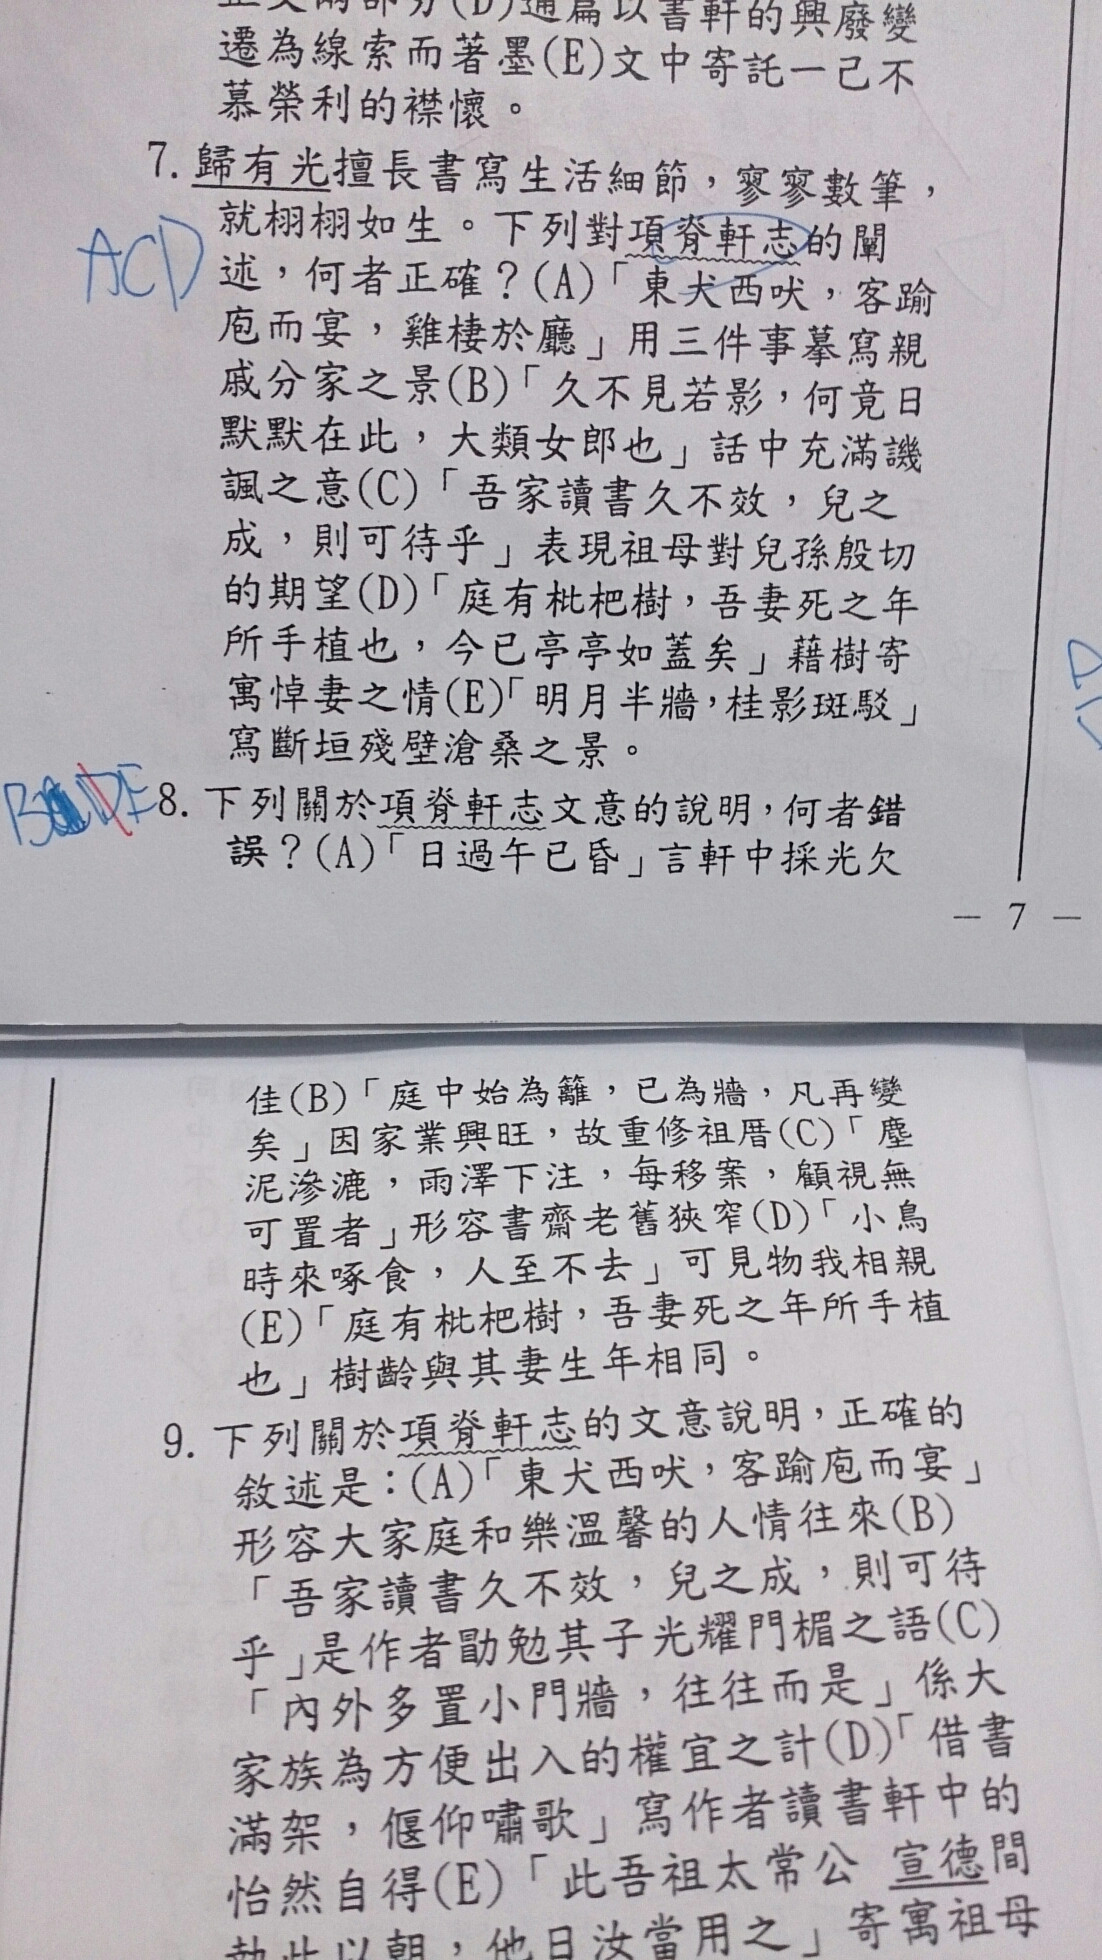 正文兩部分(D)通篇以書軒的興廢變
遷為線索而著墨(E)文中寄託一己不
慕榮利的襟懷。
7. 歸有光擅長書寫生活細節，寥寥數筆，
就栩栩如生。下列對項脊軒志的闡
ACD
述，何者正確？(A)「東犬西吠，客踰
庖而宴，雞棲於廳」用三件事摹寫親
戚分家之景(B)「久不見若影，何竟日
默默在此，大類女郎也」話中充滿譏
諷之意(C)「吾家讀書久不效，兒之
成，則可待乎」表現祖母對兒孫殷切
的期望(D)「庭有枇杷樹，吾妻死之年
所手植也，今已亭亭如蓋矣」藉樹寄
寓悼妻之情(E)「明月半牆，桂影斑駁」
寫斷垣殘壁滄桑之景。
8. 下列關於項脊軒志文意的說明，何者錯
誤？(A)「日過午已昏」言軒中採光欠
— 7 —
佳(B)「庭中始為籬，已為牆，凡再變
矣」因家業興旺，故重修祖厝(C)「塵
泥滲漉，雨澤下注，每移案，顧視無
可置者」形容書齋老舊狹窄(D)「小鳥
時來啄食，人至不去」可見物我相親
(E)「庭有枇杷樹，吾妻死之年所手植
也」樹齡與其妻生年相同。
9. 下列關於項脊軒志的文意說明，正確的
敘述是：(A)「東犬西吠，客踰庖而宴」
形容大家庭和樂溫馨的人情往來(B)
「吾家讀書久不效，兒之成，則可待
乎」是作者勖勉其子光耀門楣之語(C)
「內外多置小門牆，往往而是」係大
家族為方便出入的權宜之計(D)「借書
滿架，偃仰嘯歌」寫作者讀書軒中的
怡然自得(E)「此吾祖太常公 宣德間
執此以朝，他日汝當用之」寄寓祖母